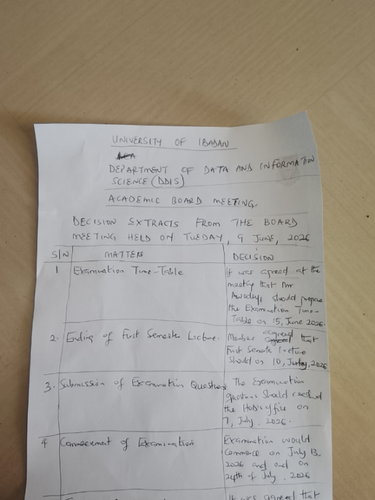 UNIVERSITY OF IBADAN
DEPARTMENT OF DATA AND INFORMATION
SCIENCE (DDIS)
ACADEMIC BOARD MEETING
DECISION EXTRACTS FROM THE BOARD
MEETING HELD ON TUEDAY, 9 JUNE, 2026
S/N MATTER DECISION
1 Examination Time-Table It was agreed at the
meeting that Mr
should prepare
the Examination Time-
Table on 15, June 2026.
2. Ending of First Semester Lecture. that
First Semester lecture
should on 10, 2026
3. Submission of Examination Questions The Examination
questions should
the office on
7, July. 2026.
4 Commecement of Examination Examination would
commence on July 13,
2026 and end on
24th of July. 2026
It was agreed that